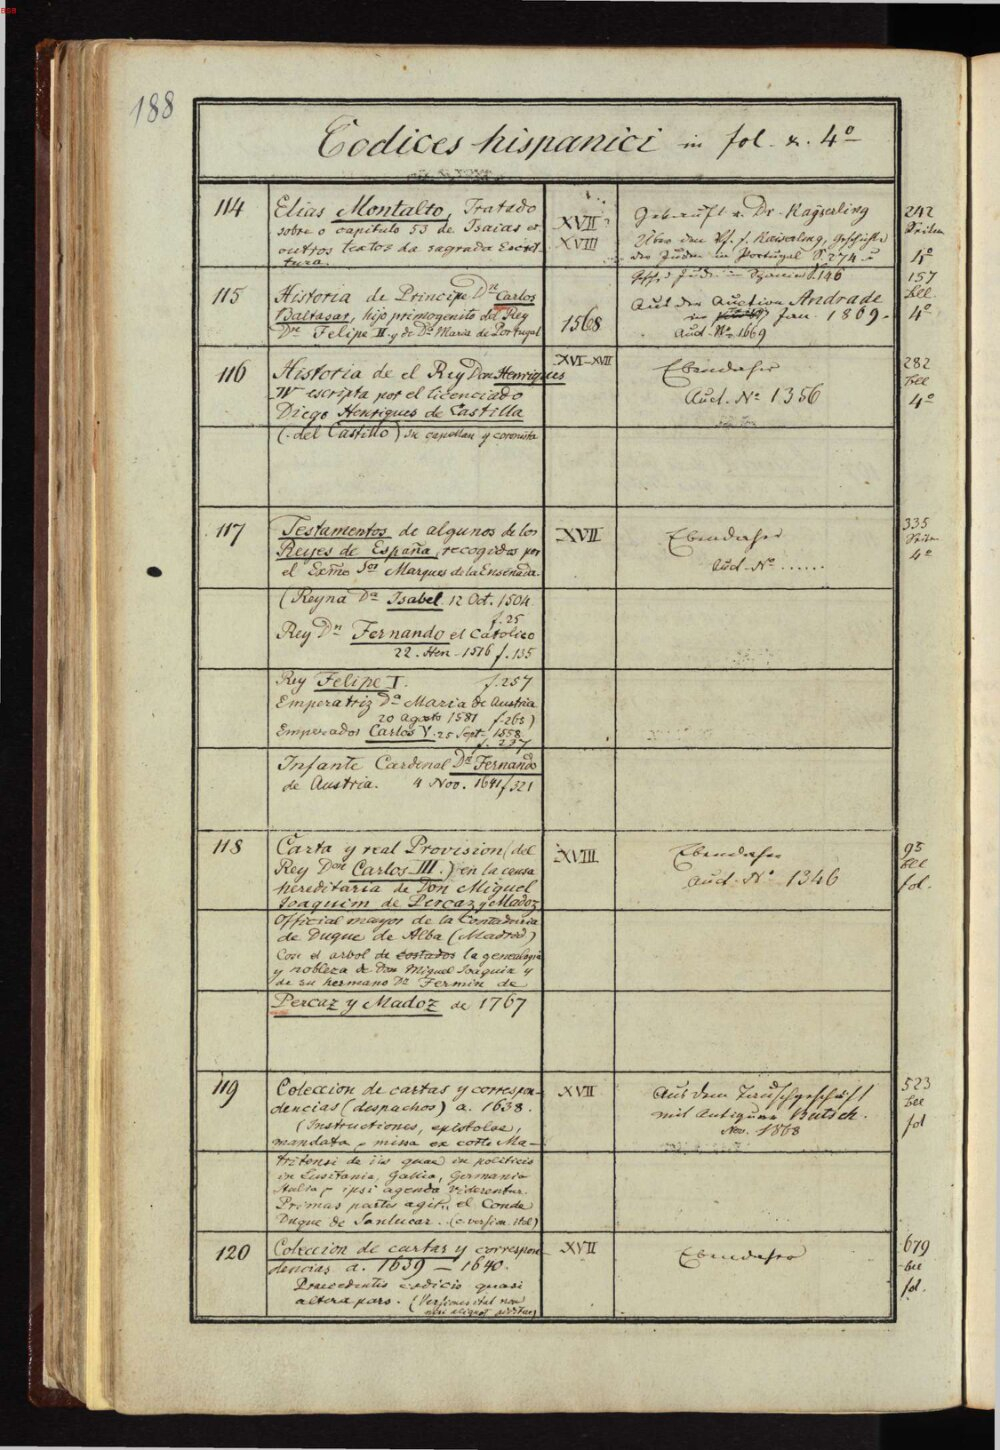 BSB
188
Codices hispanici in fol. u. 4º
114
Elias Montalto, Tratado
sobre o capitulo 53 de Isaias e
outros textos da sagrada Escrit-
tura.
XVII
XVIII
Gekauft v. Dr. Kayserling
Über den Vf. s. Kaiserling, Geschichte
der Juden in Portugal S. 274 u
Gesch. d. Jud. in Spanien S. 146
242
Seiten
4º
115
Historia de Principe Dn Carlos
Baltasar, hijo primogenito del Rey
Dn Felipe II. y de Dª Maria de Portugal
1568
Aus der Auction Andrade
in Jan. 1869.
Auct. Nº 1669
157
bll.
4º
116
Historia de el Rey Don Henriques
IV escripta por el licenciado
Diego Henriques de Castilla
(del Castillo) su capellan y coronista
XVI-XVII
Ebendaher
Auct. Nº 1356
282
bll
4º
117
Testamentos de algunos de los
Reyes de España, recogidos por
el Exmo Sor Marques de la Ensenada.
(Reyna Dª Isabel 12 Oct. 1504
f. 25
Rey Dn Fernando el Catolico
22. Hen. 1516 f. 135
Rey Felipe I. f. 257
Emperatriz Dª Maria de Austria
20 Agosto 1581 f. 265)
Emperados Carlos V. 25 Sept. 1558
f. 297
Infante Cardenal Dn Fernando
de Austria. 4 Nov. 1641 f. 321
XVII
Ebendaher
Auct. Nº ......
335
Seiten
4º
118
Carta y real Provision (del
Rey Don Carlos III.) en la causa
hereditaria de Don Miguel
Joaquim de Percaz y Madoz
Official mayor de la Contaduria
de Duque de Alba (Madrid)
Con el arbol de costados la genealogia
y nobleza de Don Miguel Joaquin y
de su hermano Dn Fermin de
Percaz y Madoz de 1767
XVIII
Ebendaher
Auct. Nº 1346
95
bll
fol.
119
Coleccion de cartas y correspon-
dencias (despachos) a. 1638.
(Instructiones, epistolae,
mandata, missa ex corte Ma-
tritensi de iis quae in politicis
in Lusitania, Gallia, Germania
Italia, ipsi agenda viderentur.
Primas partes agit, el Conde
Duque de Sanlucar. (c. version. ital)
XVII
Aus dem Tauschgeschäft
mit Antiquar Butsch.
Nov. 1868
523
bll
fol
120
Coleccion de cartas y correspon-
dencias a. 1639 — 1640.
Praecedentis codicis quasi
altera pars. (Versiones ital non
nisi aliquot
XVII
Ebendaher
679
bll
fol.